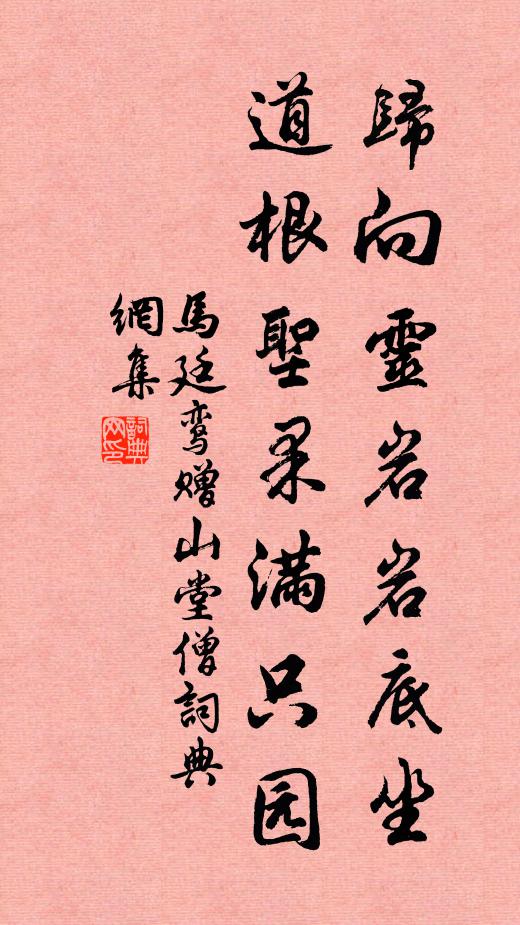 歸向靈岩岩底坐
道根聖果满只园
馬廷鸾赠山堂僧詞典
網集
詞典
网印